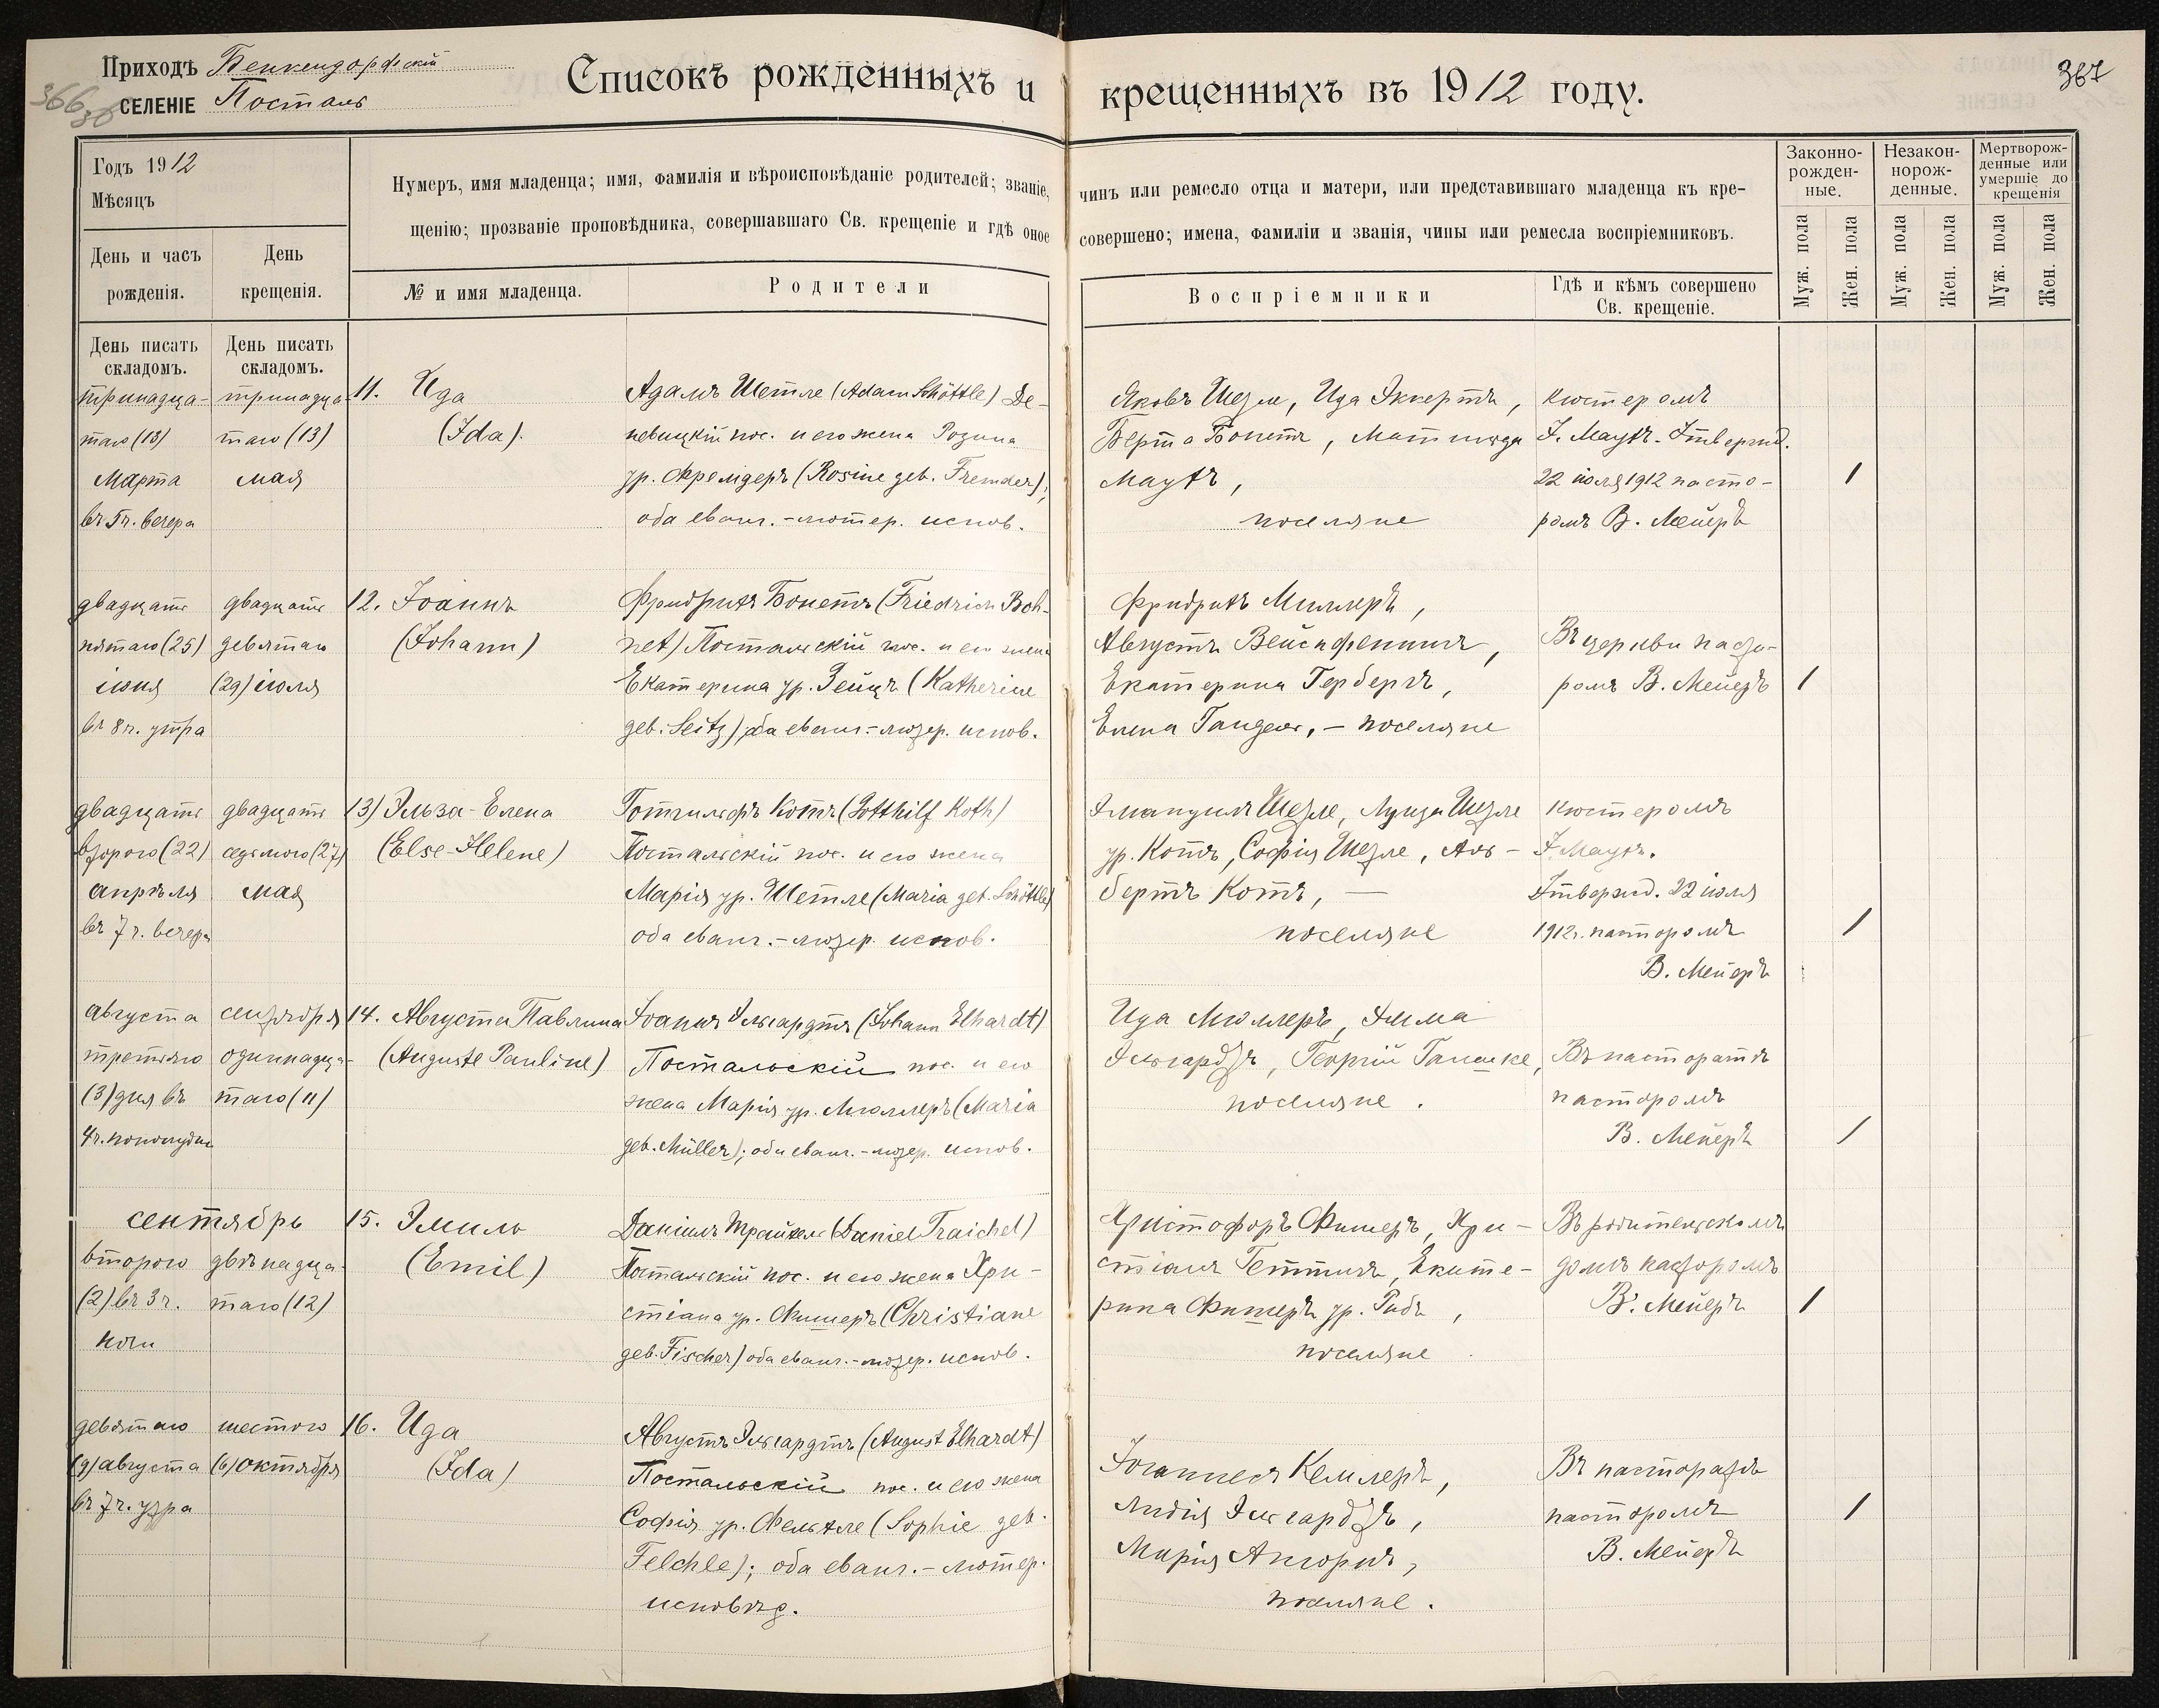 Приходъ Бенкендорфскій
СЕЛЕНІЕ Посталь
366
367
Списокъ рожденныхъ и крещенныхъ въ 1912 году.
Годъ 1912
Мѣсяцъ
День и часъ рожденія.
День крещенія.
Нумеръ, имя младенца; имя, фамилія и вѣроисповѣданіе родителей; званіе, чинъ или ремесло отца и матери, или представившаго младенца къ кре-
щенію; прозваніе проповѣдника, совершавшаго Св. крещеніе и гдѣ оное совершено; имена, фамиліи и званія, чины или ремесла воспріемниковъ.
№ и имя младенца.
Родители
Воспріемники
Гдѣ и кѣмъ совершено Св. крещеніе.
Законно-рожден-ные.
Незакон-норож-денные.
Мертворож-денные или умершіе до крещенія
Муж. пола
Жен. пола
Муж. пола
Жен. пола
Муж. пола
Жен. пола
День писать складомъ.
День писать складомъ.
тринадца-
таго (13)
Марта
въ 5ч. вечера
тринадца-
таго (13)
мая
11. Ида
(Ida).
Адамъ Шетле (Adam Schöttle) Де-
невицкій пос. и его жена Розина
ур. Фремдеръ (Rosine geb. Fremder),
оба еванг.-лютер. испов.
Яковъ Шезле, Ида Эккертъ,
Берта Бонетъ, Матильда
Маухъ,
поселяне
кюстеромъ
Г. Маухъ. Утвержд.
22 іюля 1912 пасто-
ромъ В. Мейеръ
1
двадцать
пятаго (25)
іюня
въ 8ч. утра
двадцать
девятаго
(29) іюля
12. Іоаннъ
(Johann)
Фридрихъ Бонетъ (Friedrich Boh-
net) Постальскій пос. и его жена
Екатерина ур. Зейцъ (Katherine
geb. Seitz) оба еванг.-лютер. испов.
Фридрихъ Миллеръ,
Августъ Вейспфеннигъ,
Екатерина Герберъ,
Елена Гандель, – поселяне
Въ церкви пасто-
ромъ В. Мейеръ
1
двадцать
второго (22)
апрѣля
въ 7ч. вечера
двадцать
седьмого (27)
мая
13) Эльза-Елена
(Else-Helene)
Готгильфъ Котъ (Gotthilf Koth)
Постальскій пос. и его жена
Марія ур. Шетле (Maria geb. Schöttle)
оба еванг.-лютер. испов.
Эмануилъ Шезле, Луиза Шезле
ур. Котъ, Софія Шезле, Аль-
бертъ Котъ, —
поселяне
кюстеромъ
Г. Маухъ.
Утвержд. 22 іюля
1912г. пасторомъ
В. Мейеръ
1
августа
третьяго
(3) дня въ
4ч. пополудни
сентября
одиннадца-
таго (11)
14. Августа Павлина
(Auguste Pauline)
Іоаннъ Эльгардтъ (Johann Elhardt)
Постальскій пос. и его
жена Марія ур. Мюллеръ (Maria
geb. Müller); оба еванг.-лютер. испов.
Ида Мюллеръ, Эмма
Эльгардтъ, Георгій Ганшке,
поселяне.
Въ пасторатѣ
пасторомъ
В. Мейеръ
1
сентябрь
второго
(2) въ 3ч.
ночи
двѣнадца-
таго (12)
15. Эмиль
(Emil)
Даніилъ Трайхель (Daniel Traichel)
Постальскій пос. и его жена Хри-
стіана ур. Фишеръ (Christiane
geb. Fischer) оба еванг.-лютер. испов.
Христофоръ Фишеръ, Хри-
стіанъ Геттихъ, Екате-
рина Фишеръ ур. Рибъ,
поселяне
Въ родительскомъ
домѣ пасторомъ
В. Мейеръ
1
девятаго
(9) августа
въ 7ч. утра
шестого
(6) октября
16. Ида
(Ida)
Августъ Эльгардтъ (August Elhardt)
Постальскій пос. и его жена
Софія ур. Фельхле (Sophie geb.
Felchle); оба еванг.-лютер.
исповѣд.
Іоаннесъ Кемлеръ,
Лидія Эльгардтъ,
Марія
поселяне.
Въ пасторатѣ
пасторомъ
В. Мейеръ
1